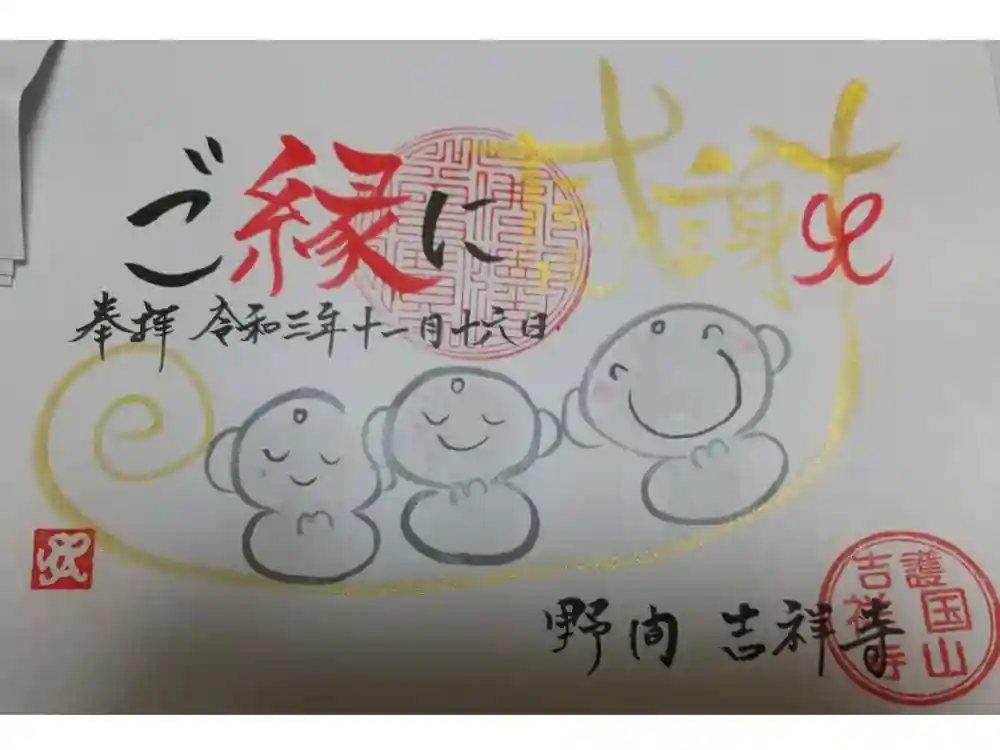 ご縁に感謝を
奉拝 令和三年十一月十六日
野間 吉祥寺
護国山
吉祥寺